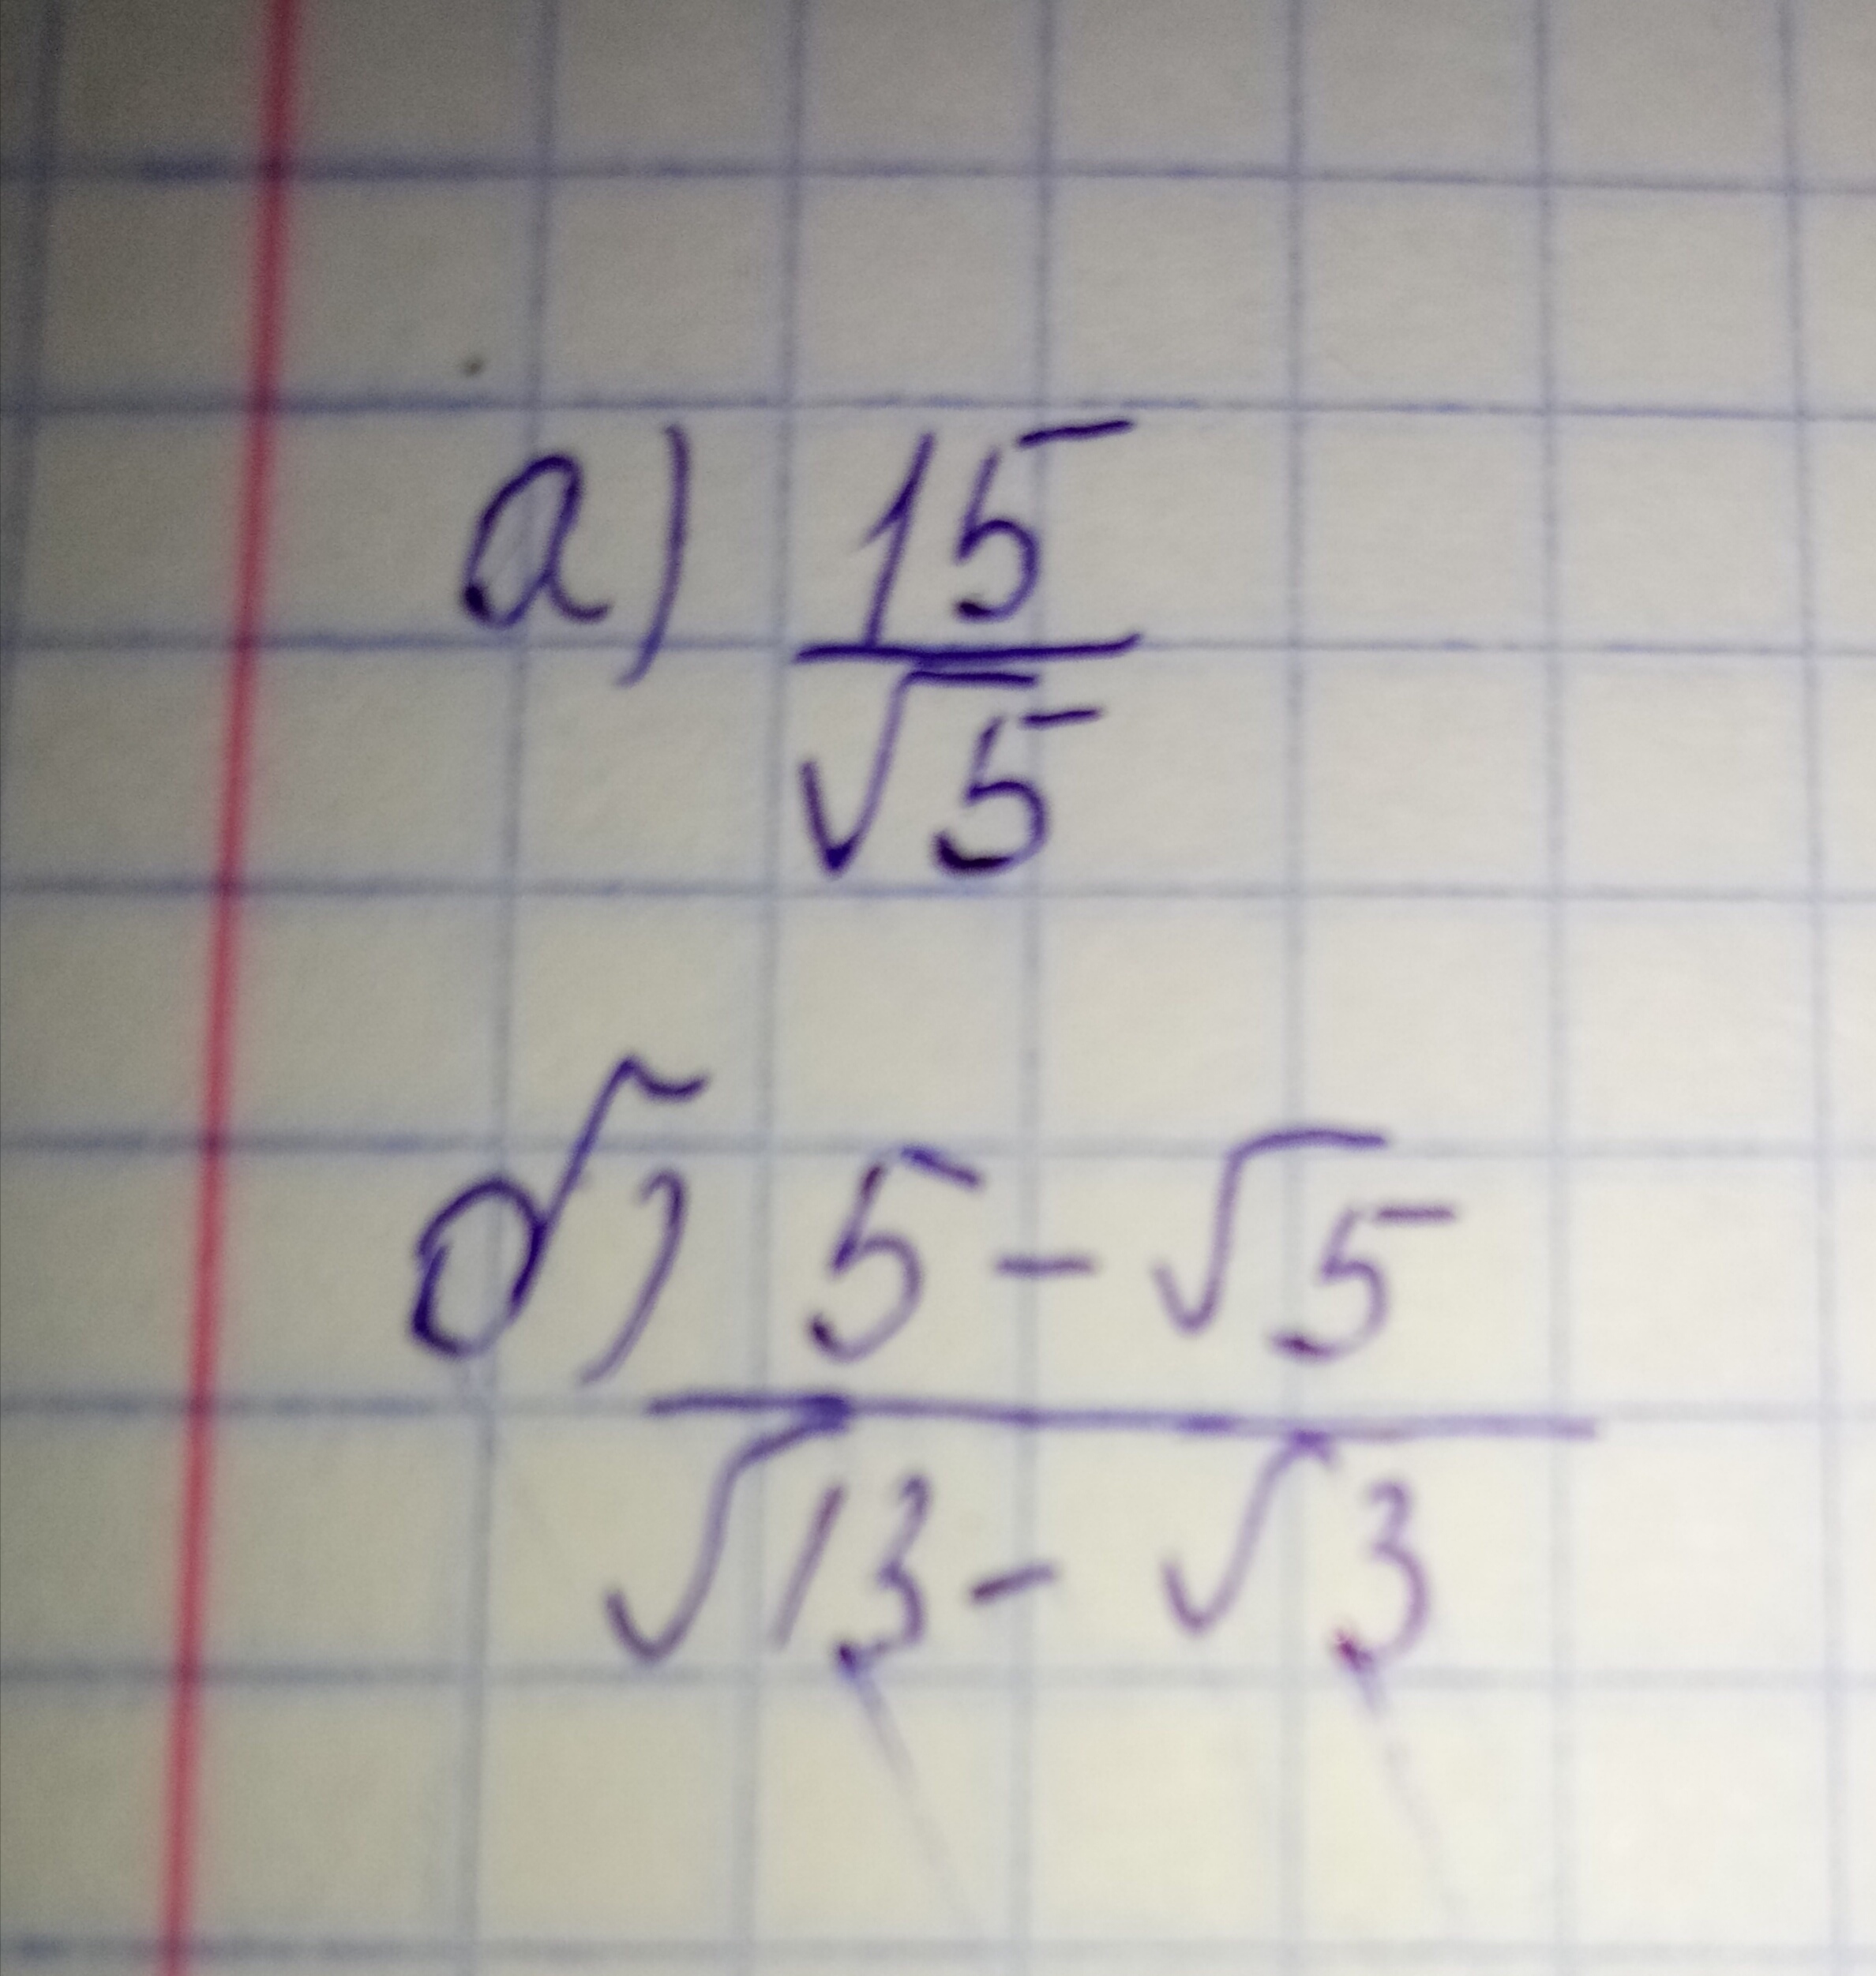 а) 15
√5
б) 5 - √5
√13 - √3